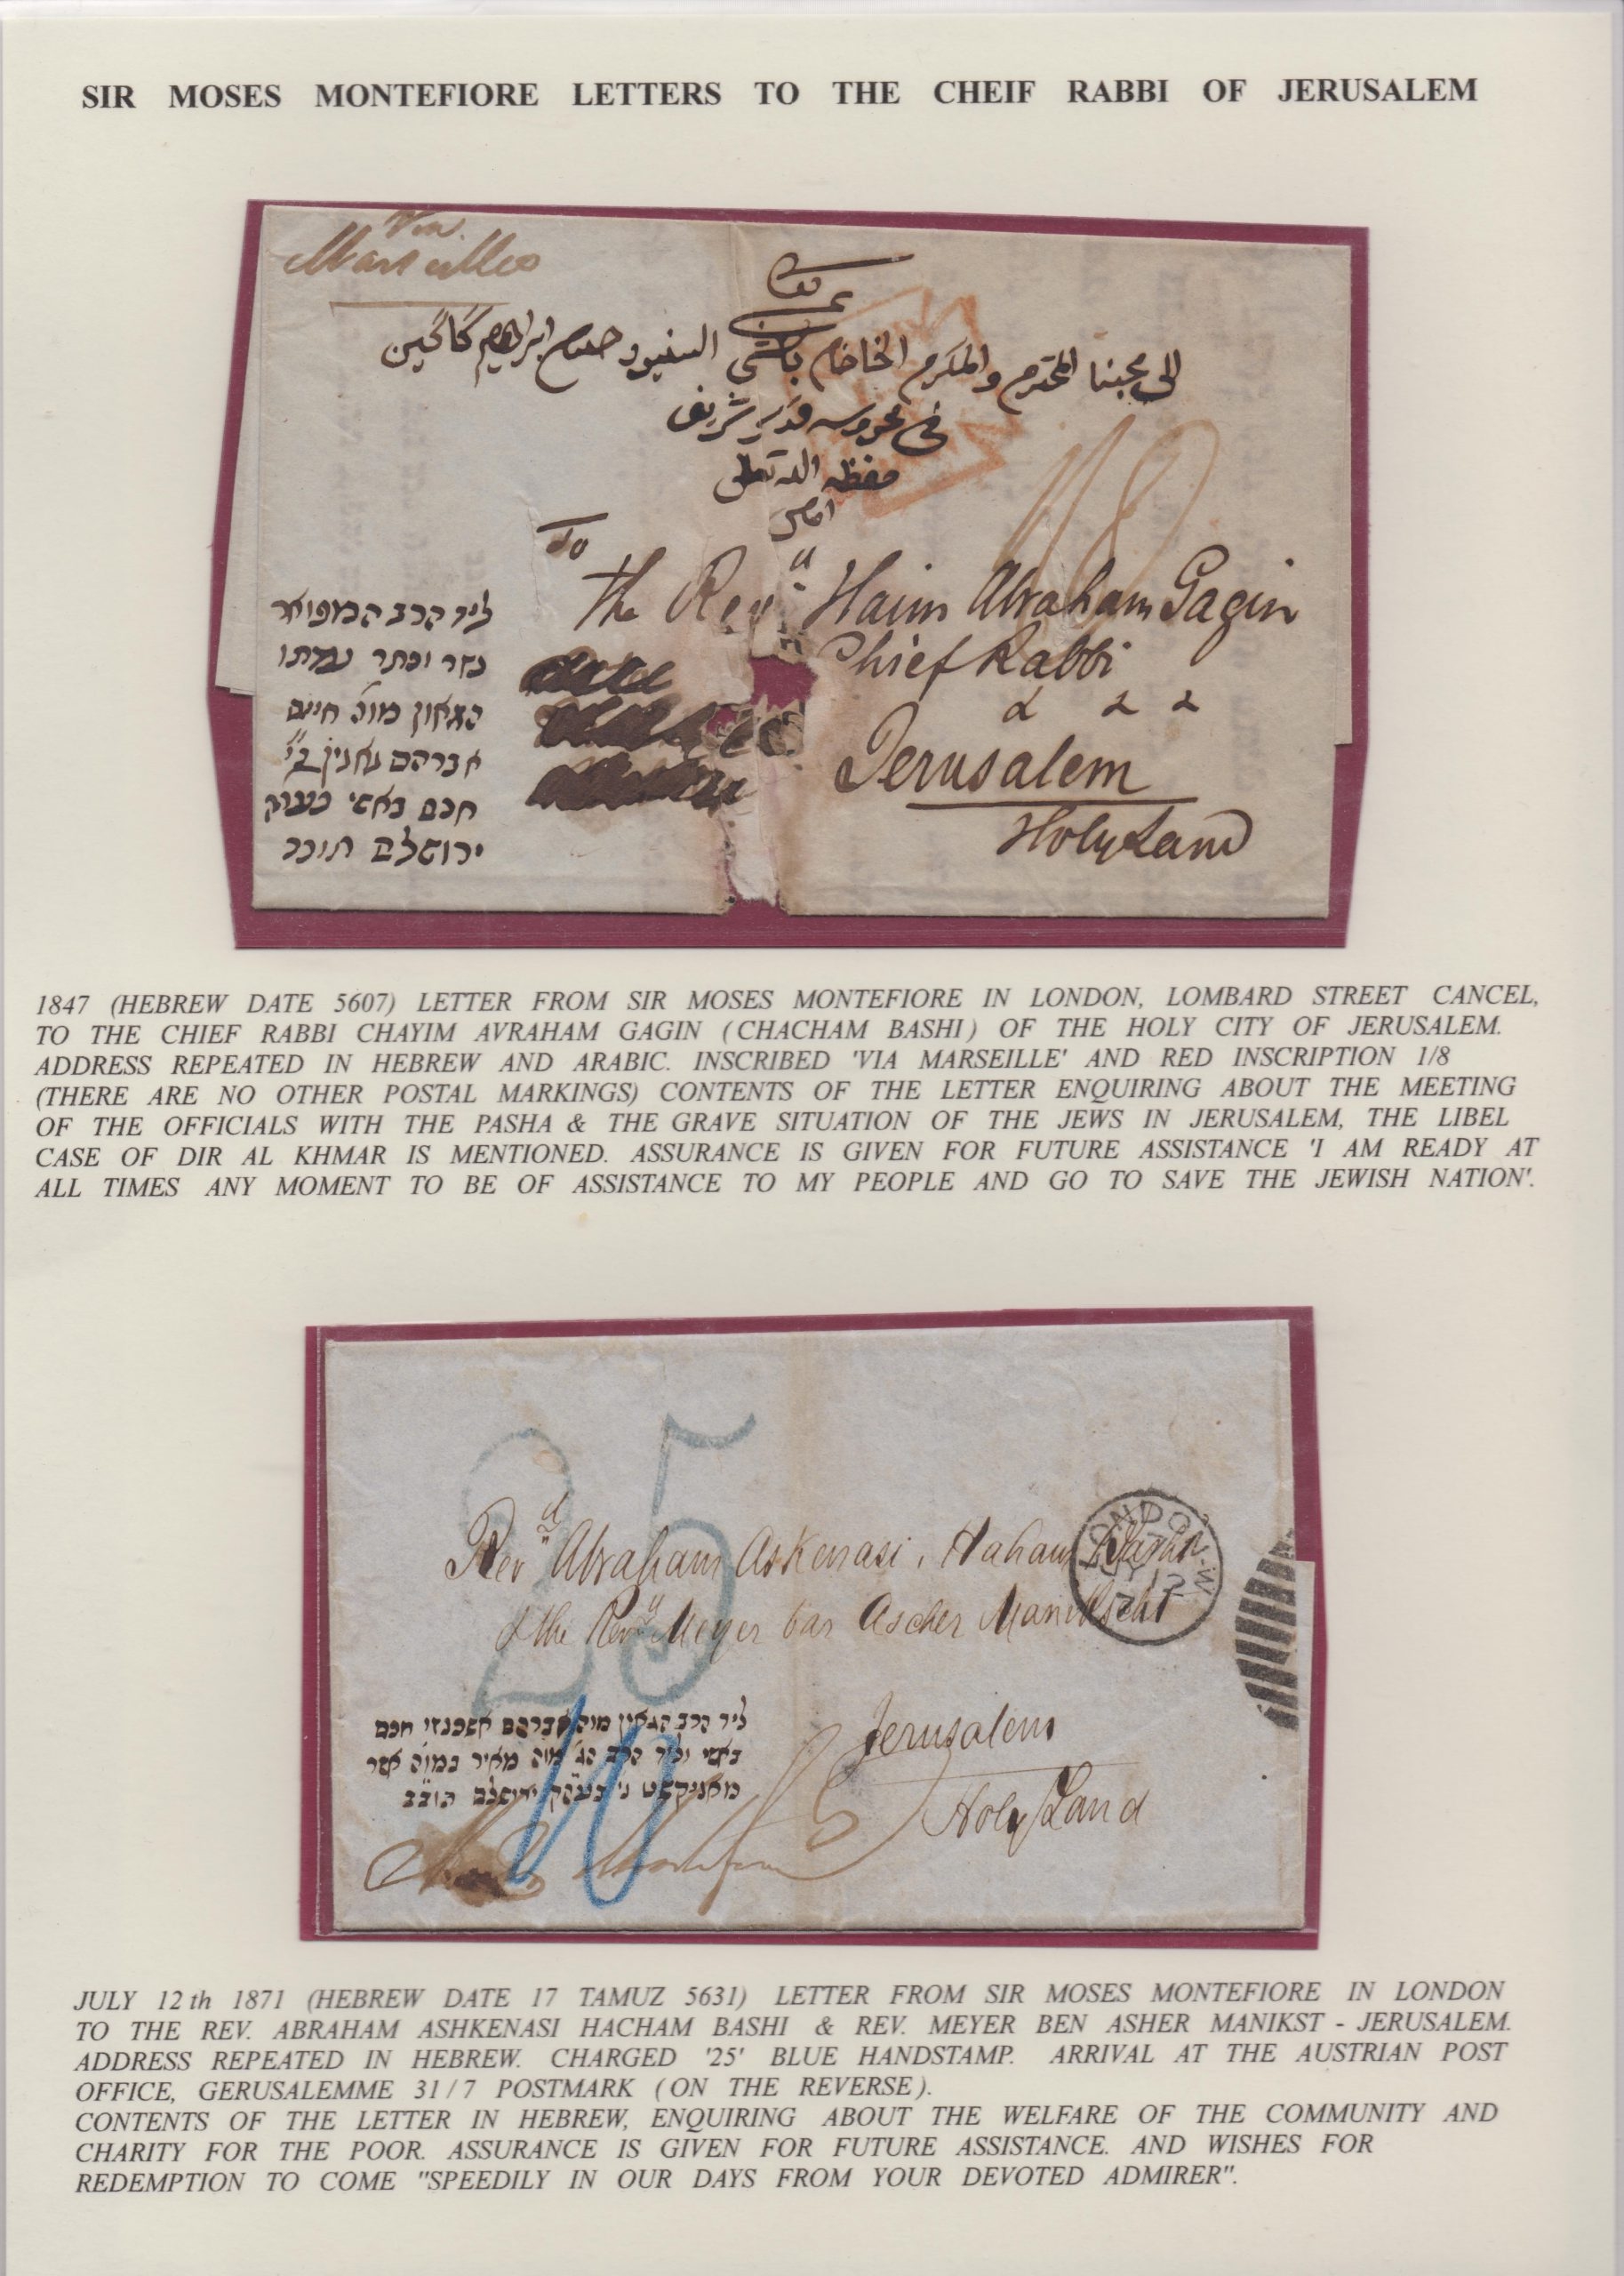 SIR MOSES MONTEFIORE LETTERS TO THE CHEIF RABBI OF JERUSALEM
Via
Marseilles
الى محبنا المحترم والمكرم الخاخام باشي السنيور حييم ابراهيم كاكين
في محروسه قدس شريف
حفظه الله تعالى
امين
1/8
To
The Revd Haim Abraham Gagin
Chief Rabbi
& & &
Jerusalem
Holy Land
ליד הרב המפואר
נזר וכתר
הגאון מוה חיים
אברהם גאגין
חכם באשי
ירושלם תובב
1847 (HEBREW DATE 5607) LETTER FROM SIR MOSES MONTEFIORE IN LONDON, LOMBARD STREET CANCEL,
TO THE CHIEF RABBI CHAYIM AVRAHAM GAGIN (CHACHAM BASHI) OF THE HOLY CITY OF JERUSALEM.
ADDRESS REPEATED IN HEBREW AND ARABIC. INSCRIBED 'VIA MARSEILLE' AND RED INSCRIPTION 1/8
(THERE ARE NO OTHER POSTAL MARKINGS) CONTENTS OF THE LETTER ENQUIRING ABOUT THE MEETING
OF THE OFFICIALS WITH THE PASHA & THE GRAVE SITUATION OF THE JEWS IN JERUSALEM, THE LIBEL
CASE OF DIR AL KHMAR IS MENTIONED. ASSURANCE IS GIVEN FOR FUTURE ASSISTANCE 'I AM READY AT
ALL TIMES ANY MOMENT TO BE OF ASSISTANCE TO MY PEOPLE AND GO TO SAVE THE JEWISH NATION'.
25
Revd Abraham Askenasi, Haham Bashi
& the Revd Meyer bar Ascher Manikscht
LONDON
JY 12
Jerusalem
Holy Land
ליד הרב הגאון מוה אברהם אשכנזי חכם
באשי וליד הרב הג מוה מאיר במוה אשר
ירושלם תובב
10
JULY 12th 1871 (HEBREW DATE 17 TAMUZ 5631) LETTER FROM SIR MOSES MONTEFIORE IN LONDON
TO THE REV. ABRAHAM ASHKENASI HACHAM BASHI & REV. MEYER BEN ASHER MANIKST - JERUSALEM.
ADDRESS REPEATED IN HEBREW. CHARGED '25' BLUE HANDSTAMP. ARRIVAL AT THE AUSTRIAN POST
OFFICE, GERUSALEMME 31/7 POSTMARK (ON THE REVERSE).
CONTENTS OF THE LETTER IN HEBREW, ENQUIRING ABOUT THE WELFARE OF THE COMMUNITY AND
CHARITY FOR THE POOR. ASSURANCE IS GIVEN FOR FUTURE ASSISTANCE. AND WISHES FOR
REDEMPTION TO COME "SPEEDILY IN OUR DAYS FROM YOUR DEVOTED ADMIRER".